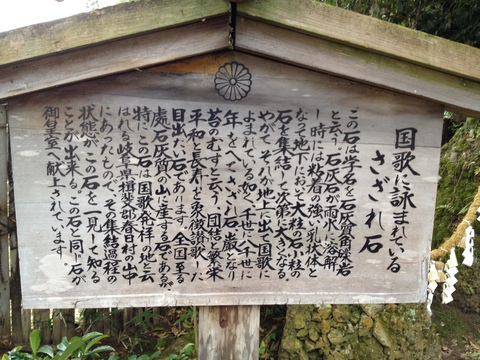 国歌に詠まれている
さざれ石
この石は学名を石灰質角礫岩
と云う。石灰石が雨水に溶解
し時には粘着の強い乳状体と
なって地下において大粒の石小粒の
石を集結して次第に大きくなる
やがてそれが地上に出て国歌に
よまれている如く、千世に八千世に
年をへてさざれ石が巌となり
苔のむすと云う、団結と繁栄
平和と長寿とを象徴讃歌した
目出たい石であります。全国至る
處石灰質の山に産する石であるが
特にこの石は国歌発祥の地と云
はれる岐阜県揖斐郡春日村の山中
にあったもので、その集結過程の
状態がこの石を一見して知る
ことが出来る。この石と同じ石が
御皇室へ献上されています